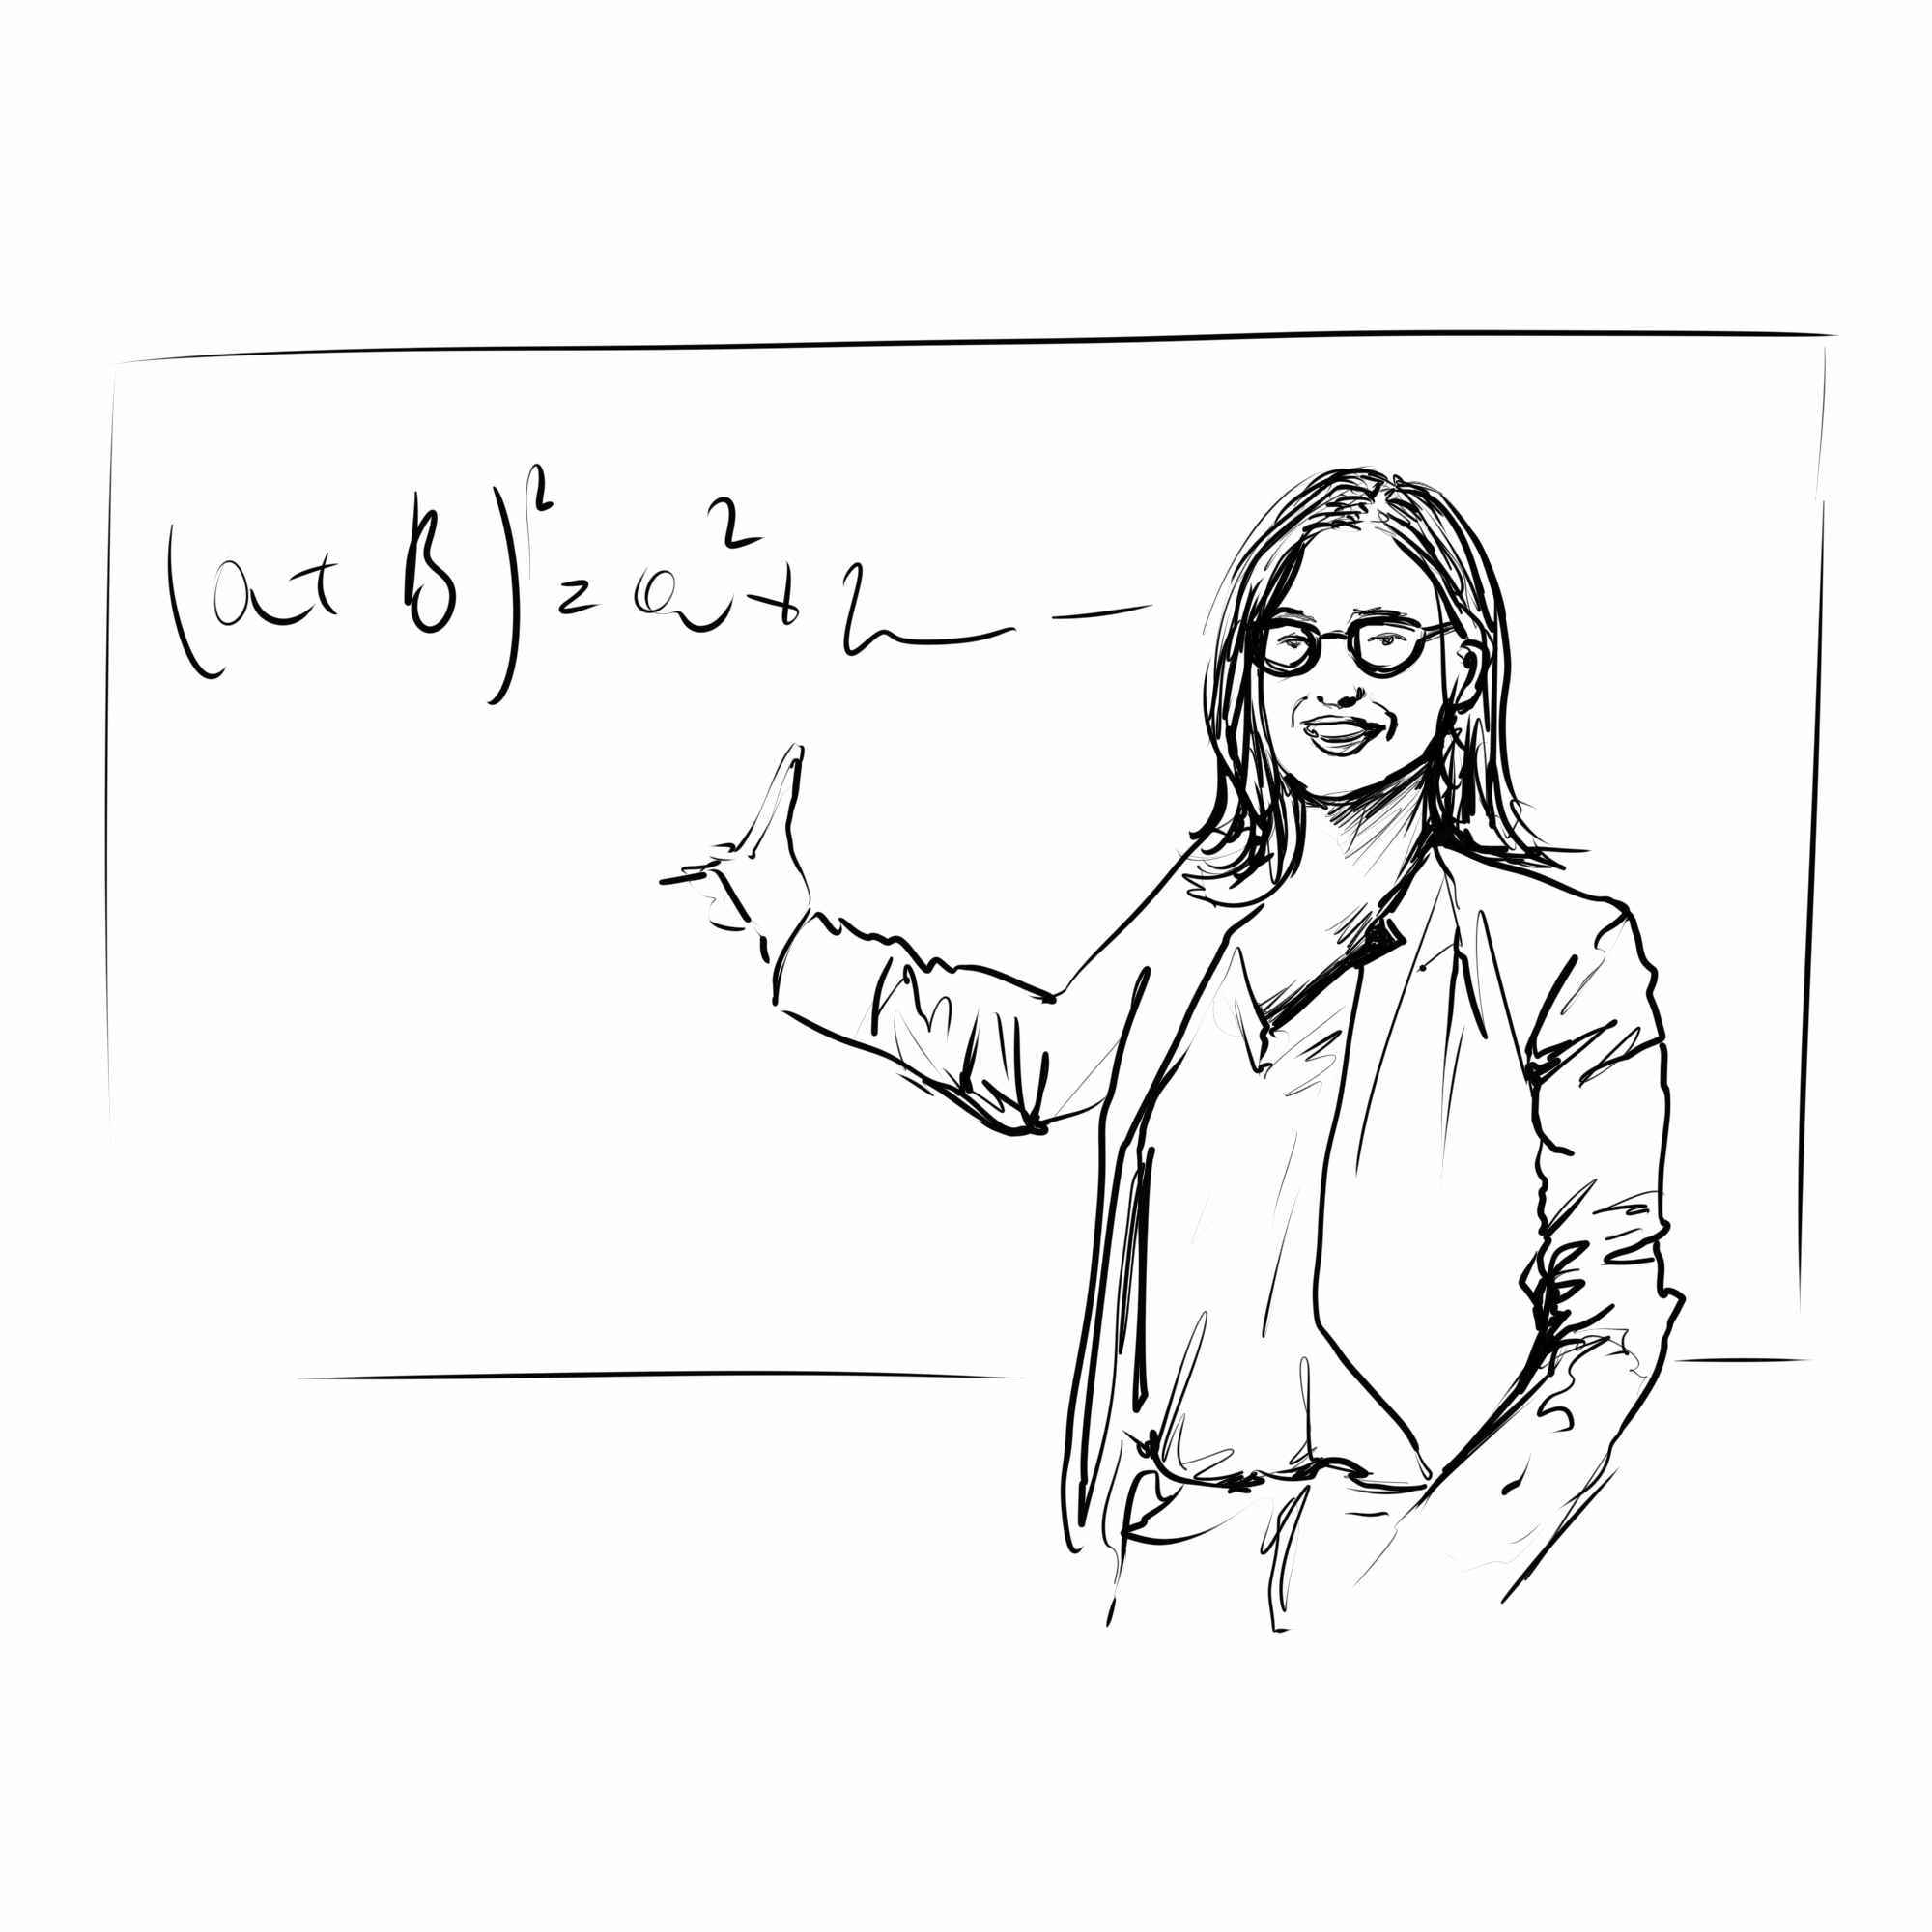 (a+b)²=a²+2 —